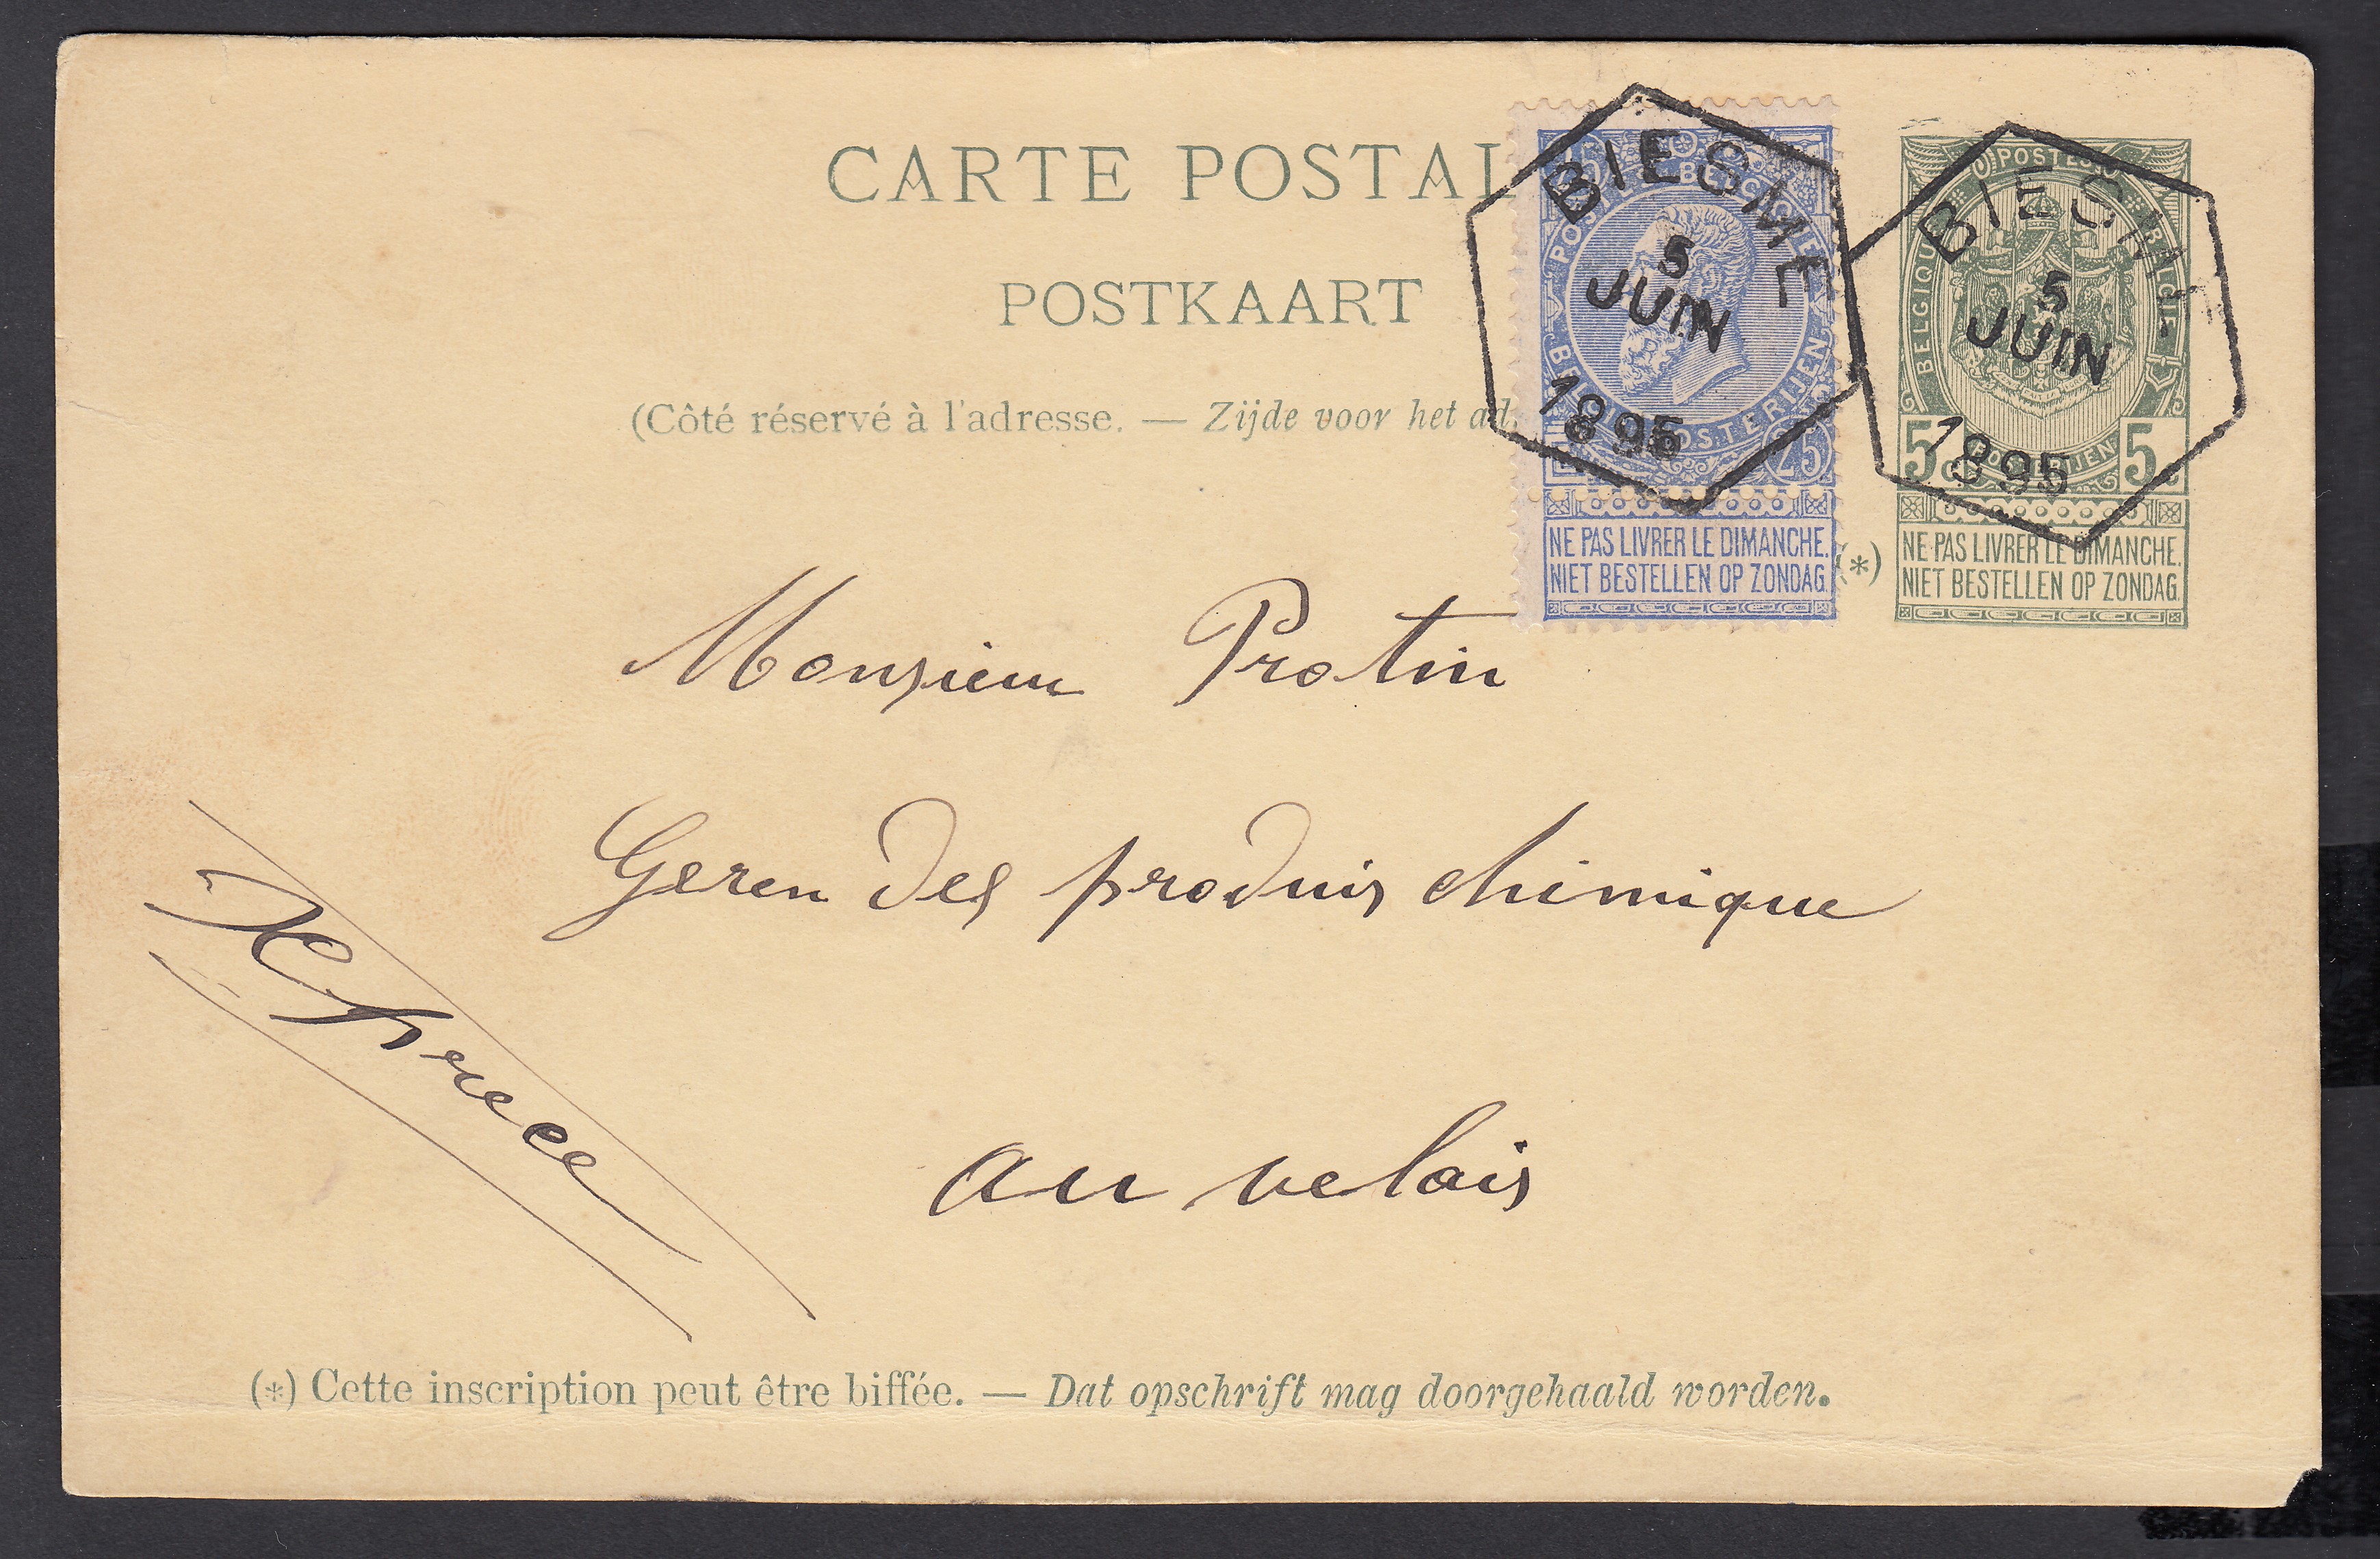 CARTE POSTAL
POSTKAART
(Côté réservé à l'adresse. — Zijde voor het ad
BIESME
5
JUIN
1895
25
NE PAS LIVRER LE DIMANCHE.
NIET BESTELLEN OP ZONDAG
(*)
BIESME
5
JUIN
1895
POSTES
BELGIQUE
BELGIË
5 5
NE PAS LIVRER LE DIMANCHE.
NIET BESTELLEN OP ZONDAG.
Monsieur Protin
Geren des produis chimique
auvelais
(*) Cette inscription peut être biffée. — Dat opschrift mag doorgehaald worden.